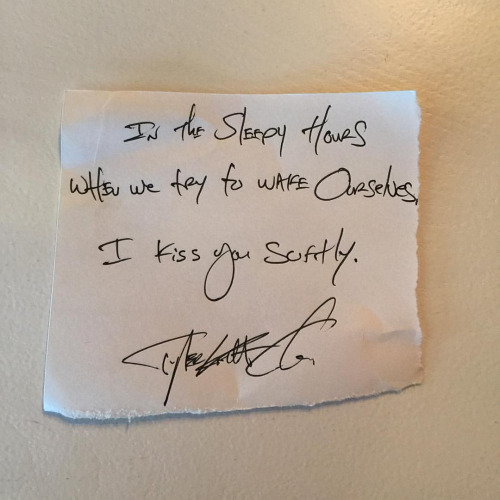 In the Sleepy Hours
When we try to wake Ourselves,
I kiss you softly.
Tyler